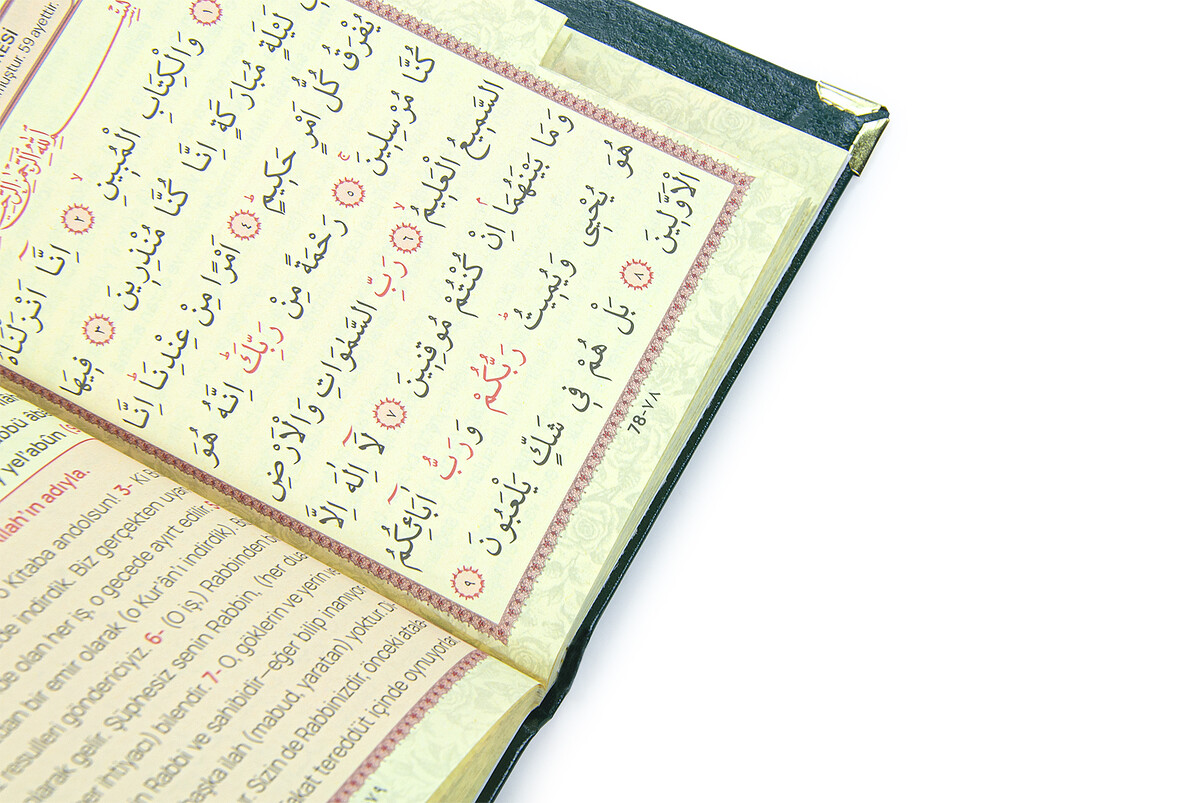 RESİ
muştur. 59 ayettir.
بِسْمِ اللّٰهِ الرَّحْمٰنِ الرَّحِيمِ
١ وَالْكِتَابِ الْمُبِينِ ٢ اِنَّٓا اَنْزَلْنَاهُ
لَيْلَةٍ مُبَارَكَةٍ اِنَّا كُنَّا مُنْذِرِينَ ٣ فِيهَا
يُفْرَقُ كُلُّ اَمْرٍ حَكِيمٍ ٤ اَمْرًا مِنْ عِنْدِنَا اِنَّا
كُنَّا مُرْسِلِينَ ٥ رَحْمَةً مِنْ رَبِّكَ اِنَّهُ هُوَ
السَّمِيعُ الْعَلِيمُ ٦ رَبِّ السَّمٰوَاتِ وَالْاَرْضِ
وَمَا بَيْنَهُمَٓا اِنْ كُنْتُمْ مُوقِنِينَ ٧ لَٓا اِلٰهَ اِلَّا
هُوَ يُحْيِي وَيُمِيتُ رَبُّكُمْ وَرَبُّ اٰبَٓائِكُمُ
الْاَوَّلِينَ ٨ بَلْ هُمْ فِي شَكٍّ يَلْعَبُونَ ٩
78-٧٨
yel'abûn
llah'ın adıyla.
o Kitaba andolsun! 3-
indirdik. Biz gerçekten
olan her iş, o gecede ayırt edilir.
bir emir olarak (o Kur'ân'ı indirdik).
resulleri göndericiyiz. 6- (O iş,) Rabbinden
olarak gelir. Şüphesiz senin Rabbin, (her
ihtiyacı) bilendir. 7- O, göklerin ve yerin
Rabbi ve sahibidir—eğer bilip
başka ilah (mabud, yaratan) yoktur.
Sizin de Rabbinizdir, önceki
tereddüt içinde oynuyorlar
٧٩